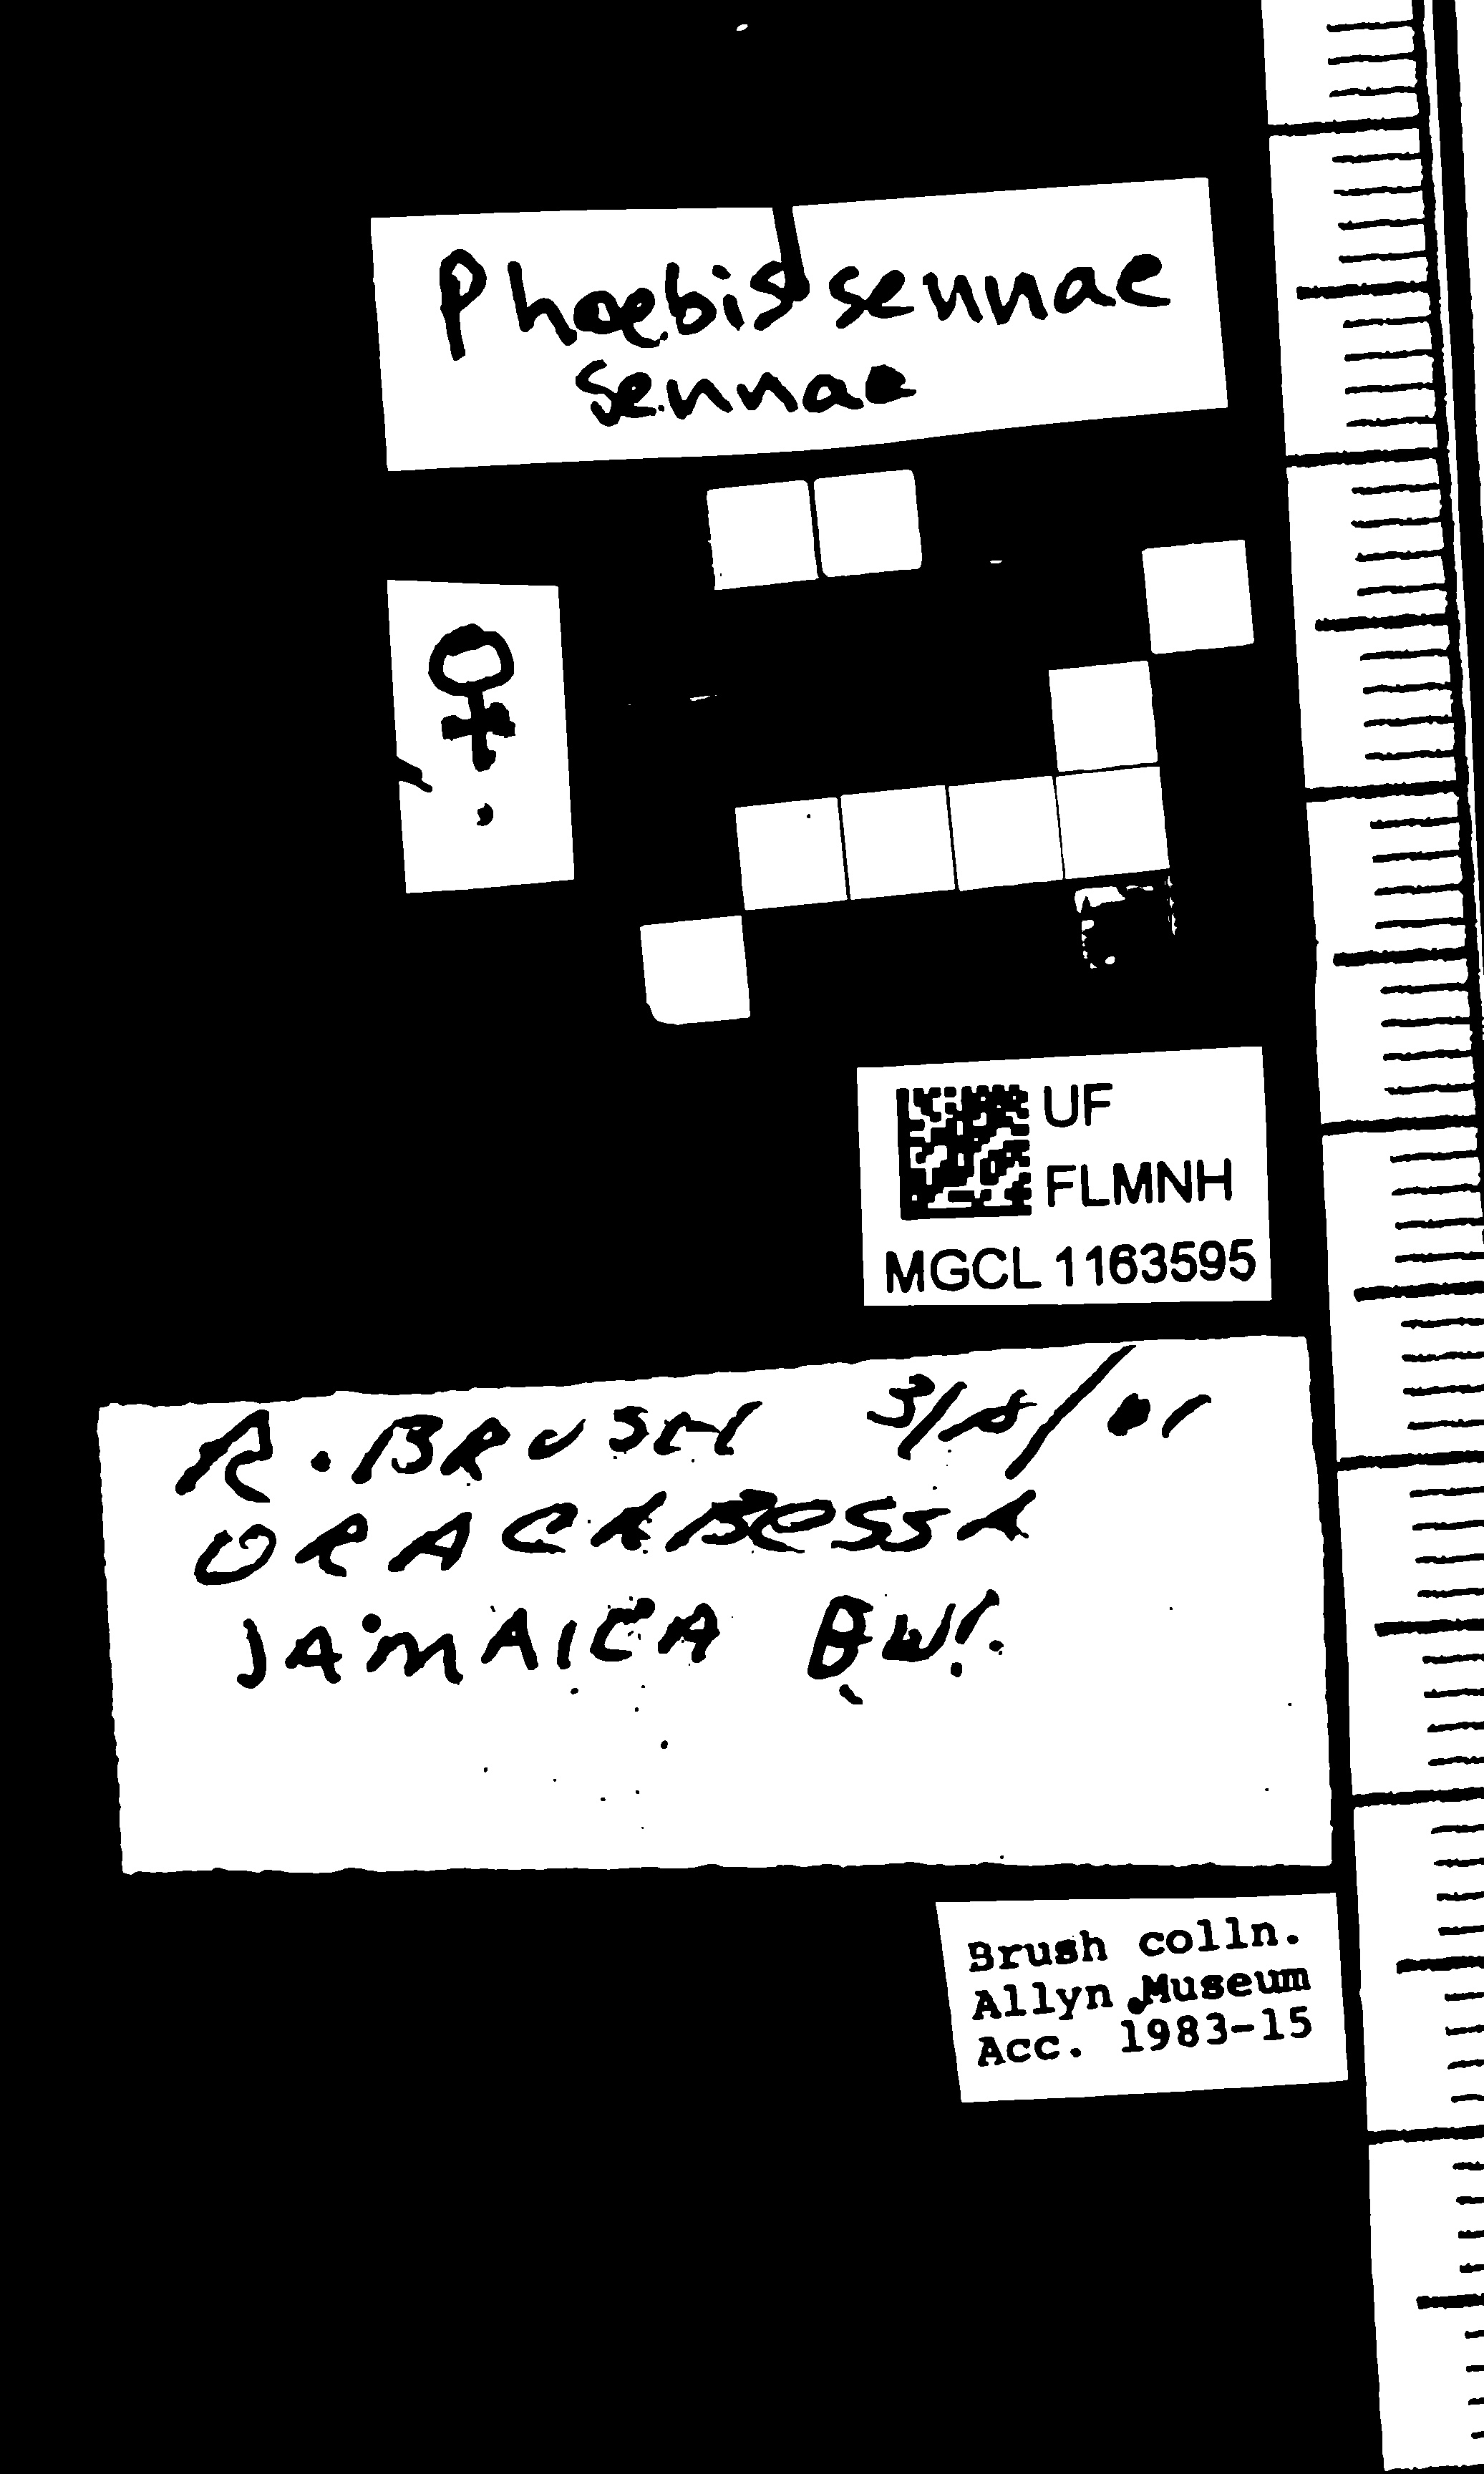 Phoebis sennae
sennae
♀
UF
FLMNH
MGCL 1163595
R. BRUSH
ORACABOSSA
JAMAICA B.W.I.
Brush colln.
Allyn Museum
Acc. 1983-15